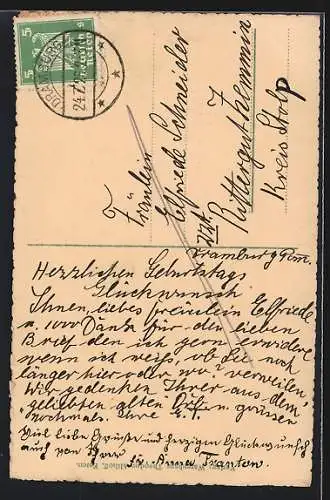 5
5
Deutsches Reich
DRAMBURG
24.7.
Fräulein
Elfriede Schneider
Rittergut Zemmin
Kreis Stolp
Dramburg Pom.
Herzlichen Geburtstags
Glückwunsch
Ihnen, liebes Fräulein Elfriede
u. 1000 Dank für den lieben
Brief den ich gern erwidere
wenn ich weiß, ob Sie noch
länger hier oder wo? verweilen
Wir gedenken Ihrer aus dem
"geliebten alten u. grüssen
nochmals. Ihre
Viel liebe Grüsse und herzigen Glückwunsch
auch von Ihrer Anna